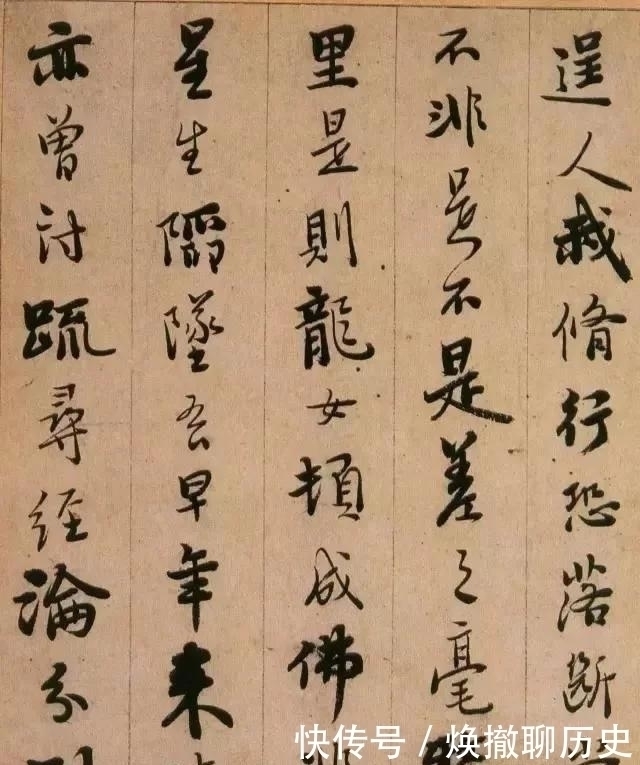 逞人我脩行恐落斷
不非是不是差之毫
里是則龍女頓成佛
星生陷墜吾早年来
亦曾討疏尋經論分
快传号 / 焕撤聊历史